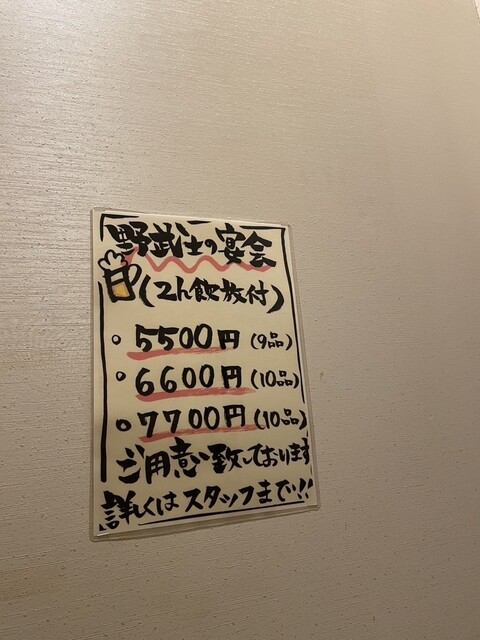 野武士の宴会
(2h飲放付)
・5500円(9品)
・6600円(10品)
・7700円(10品)
ご用意致しております
詳しくはスタッフまで!!